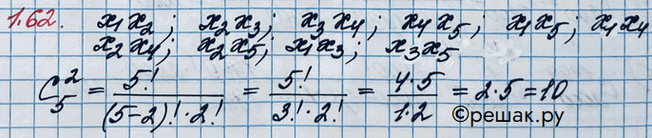 1.62. x₁x₂; x₂x₃; x₃x₄; x₄x₅; x₁x₅; x₁x₄
x₂x₄; x₂x₅; x₁x₃; x₃x₅
C₅² = 5!/((5-2)!·2!) = 5!/(3!·2!) = 4·5/(1·2) = 2·5 = 10
©решак.ру